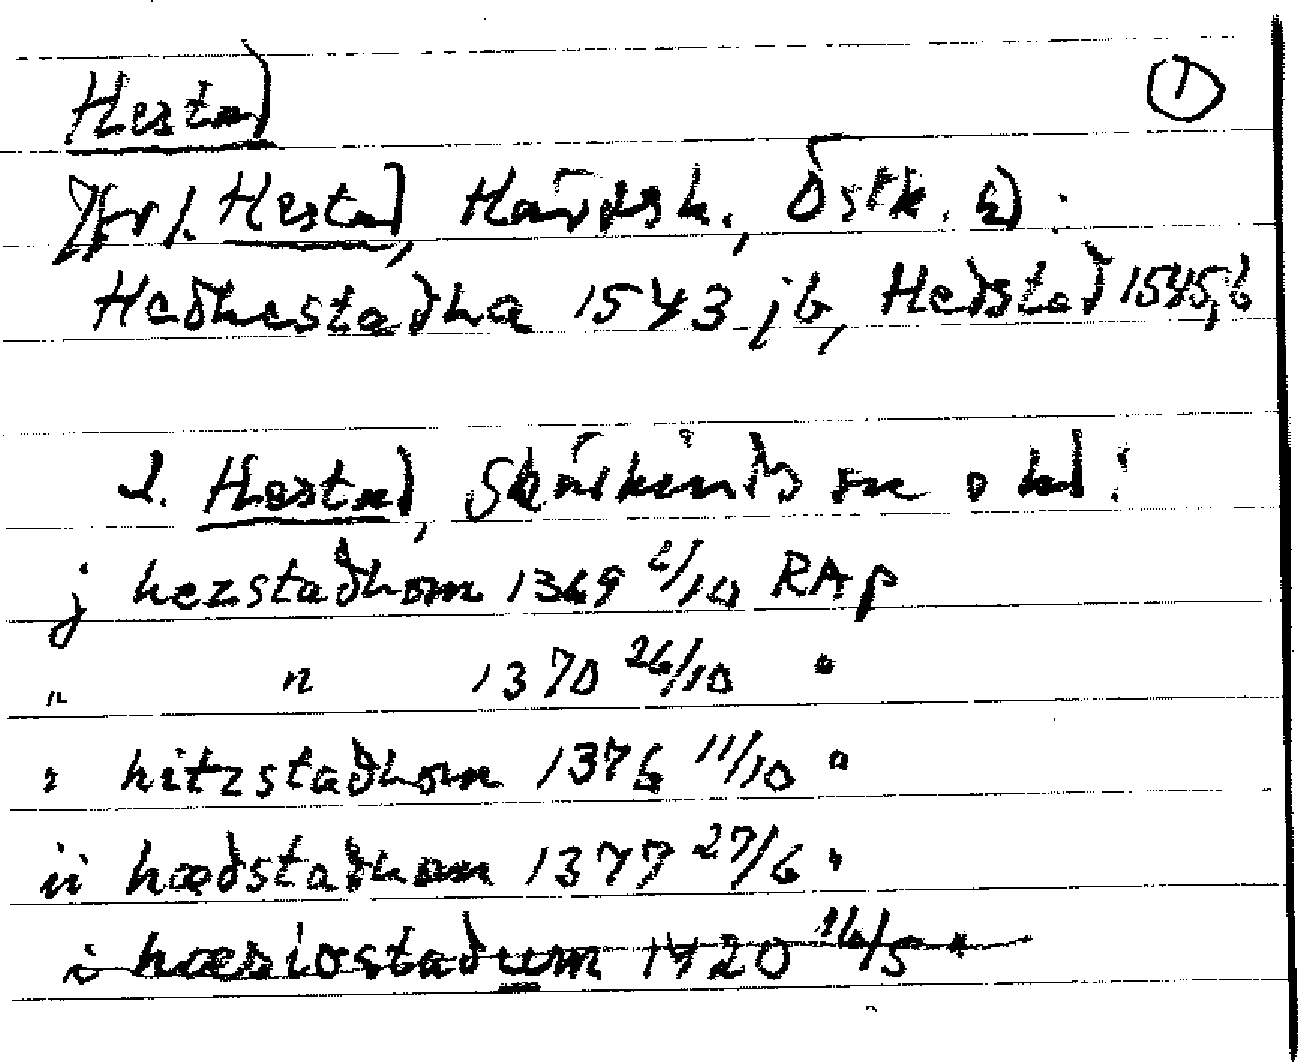 Hestad ①
Jfr 1. Hestad, Hardsh., Östk. sn:
Hedhestadha 1543 jb, Hedstad 1545, b
2. Hestad, Skärkinds sn o hd:
j hezstadhom 1369 2/10 RAp
" " 1370 26/10 "
" hitzstadhom 1376 11/10 "
ii hædstadhom 1377 27/6 "
i hæsiostadum 1420 16/5 "